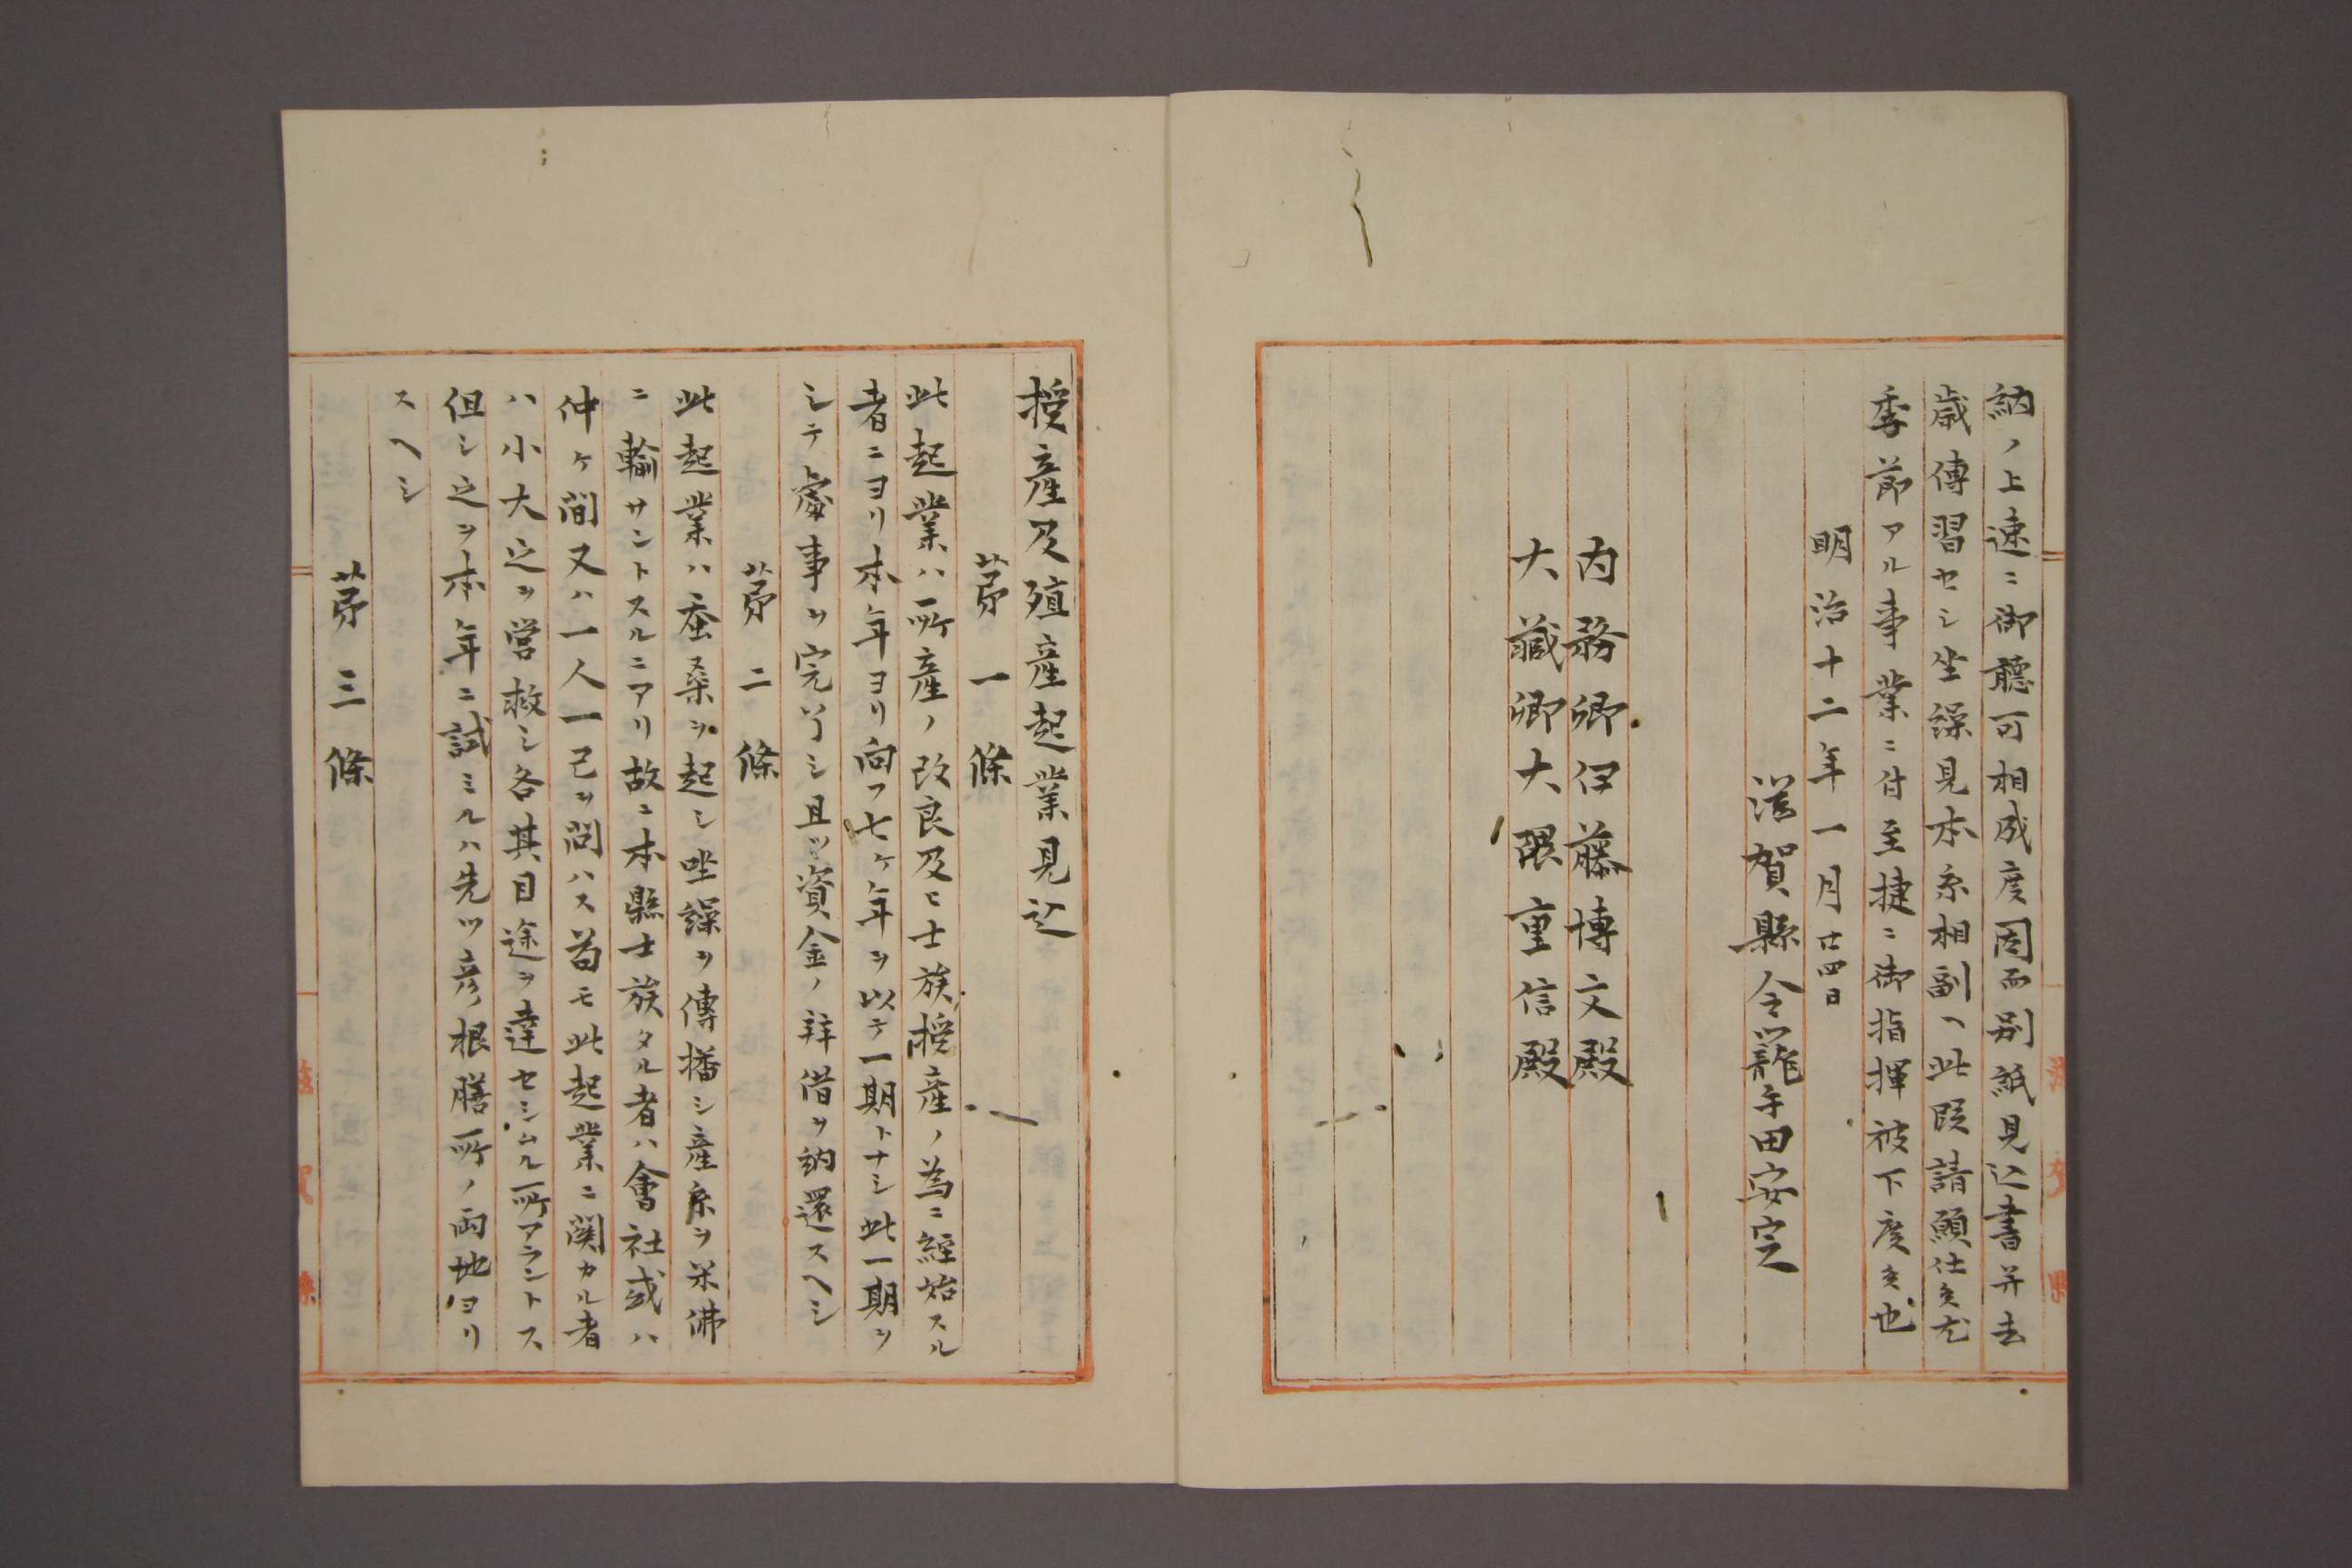 納ノ上速ニ御聽可相成度因而別紙見込書并去
歳傳習セシ坐繰見本糸相副ヘ此段請願仕候尤
季節アル事業ニ付至捷ニ御指揮被下度候也
明治十二年一月廿四日
滋賀縣令籠手田安定
内務卿伊藤博文殿
大藏卿大隈重信殿
授産及殖産起業見込
苐一條
此起業ハ所産ノ改良及ヒ士族授産ノ為ニ經始スル
者ニヨリ本年ヨリ向フ七ケ年ヲ以テ一期トナシ此一期ヲ
シテ處事ヲ完了シ且ツ資金ノ拜借ヲ納還スヘシ
苐二條
此起業ハ蚕桑ヲ起シ坐繰ヲ傳播シ産糸ヲ米佛
ニ輸サントスルニアリ故ニ本縣士族タル者ハ會社或ハ
仲ケ間又ハ一人一己ヲ問ハス苟モ此起業ニ関カル者
ハ小大之ヲ営救シ各其目途ヲ達セシムル所アラントス
但シ之ヲ本年ニ試ミルハ先ツ彦根膳所ノ両地ヨリ
スヘシ
苐三條
滋賀縣